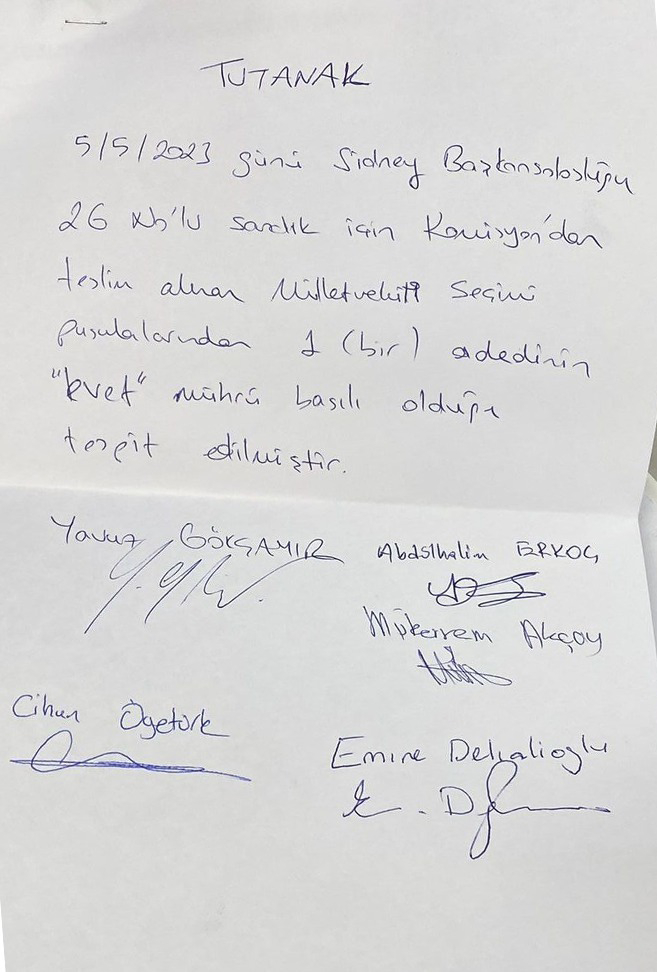 TUTANAK
5/5/2023 günü Sidney Başkonsolosluğu
26 No'lu sandık için Komisyon'dan
teslim alınan Milletvekili Seçimi
pusulalarından 1 (bir) adedinin
"Evet" mührü basılı olduğu
tespit edilmiştir.
Yavuz GÖKÇAMIR Abdulhalim ERKOÇ
Mükerrem Akçoy
Cihan Ögetürk
Emine Delialioglu
E. D